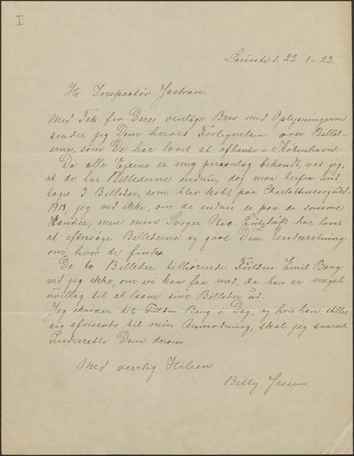 I
23-1-23.
Hr. Inspektør Jastrau.
Med Tak for Deres venlige Brev med Oplysningerne
sender jeg Dem herved Fortegnelsen over Billed-
erne, som De har lovet at efterse i København.
Da alle Ejerne er mig personlig bekendt, ved jeg,
at de har Billederne endnu, dog maa herfra und-
tages 3 Billeder, som blev købt paa Charlottenborgudst.
jeg ved ikke, om de endnu er paa de samme
Hænder, men min Svoger har lovet
at eftersøge Billederne og give Dem Underretning
om, hvor de findes.
De to Billeder tilhørende Emil Bang
ved jeg ikke, om vi kan faa med, da han er meget
uvillig til at laane sine Billeder ud.
Jeg skriver til Bang i Dag, og hvis han stiller
sig afvisende til min Anmodning, skal jeg snarest
underrette Dem derom.
Med venlig Hilsen
Betty